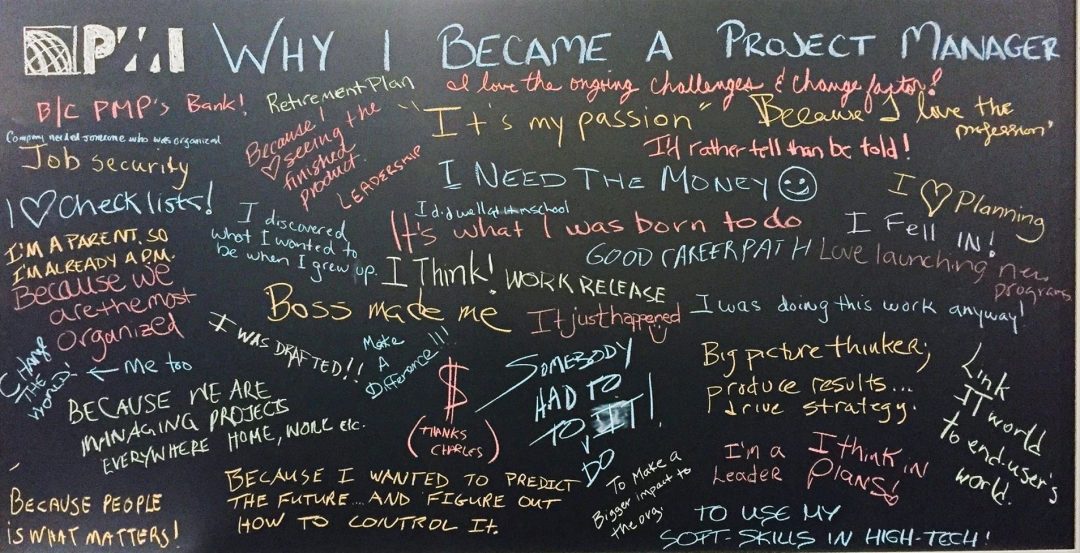 PMI WHY I BECAME A PROJECT MANAGER
B/C PMP's Bank!
Retirement Plan
I love the ongoing challenges & change factor!
Company needed someone who was organized
Job Security
Because I
♡ seeing the
finished
product.
LEADERSHIP
"It's my passion"
Because I love the
profession"
I'd rather tell than be told!
I NEED THE MONEY ☺
I ♡ Planning
I ♡ Checklists!
I discovered
what I wanted to
be when I grew up.
I did well at it in school
It's what I was born to do
I FELL IN!
I'M A PARENT, SO
I'M ALREADY A P.M.
GOOD CAREER PATH
Love launching new
programs
I Think!
WORK RELEASE
Because we
are the most
organized
Boss made me
It just happened
I was doing this work anyway!
CHANGE
THE
WORLD
← Me too
I WAS DRAFTED!!
Make
A
Difference!!!
$
(THANKS
CHARLES)
SOMEBODY
HAD TO
TO IT!
DO
Big picture thinker;
produce results...
drive strategy.
Link
IT world
to end-user's
world.
BECAUSE WE ARE
MANAGING PROJECTS
EVERYWHERE HOME, WORK etc.
I'm a
Leader
I think in
Plans!
BECAUSE PEOPLE
IS WHAT MATTERS!
BECAUSE I WANTED TO PREDICT
THE FUTURE.... AND FIGURE OUT
HOW TO CONTROL IT.
To Make a
Bigger impact to
the org.
TO USE MY
SOFT-SKILLS IN HIGH-TECH!